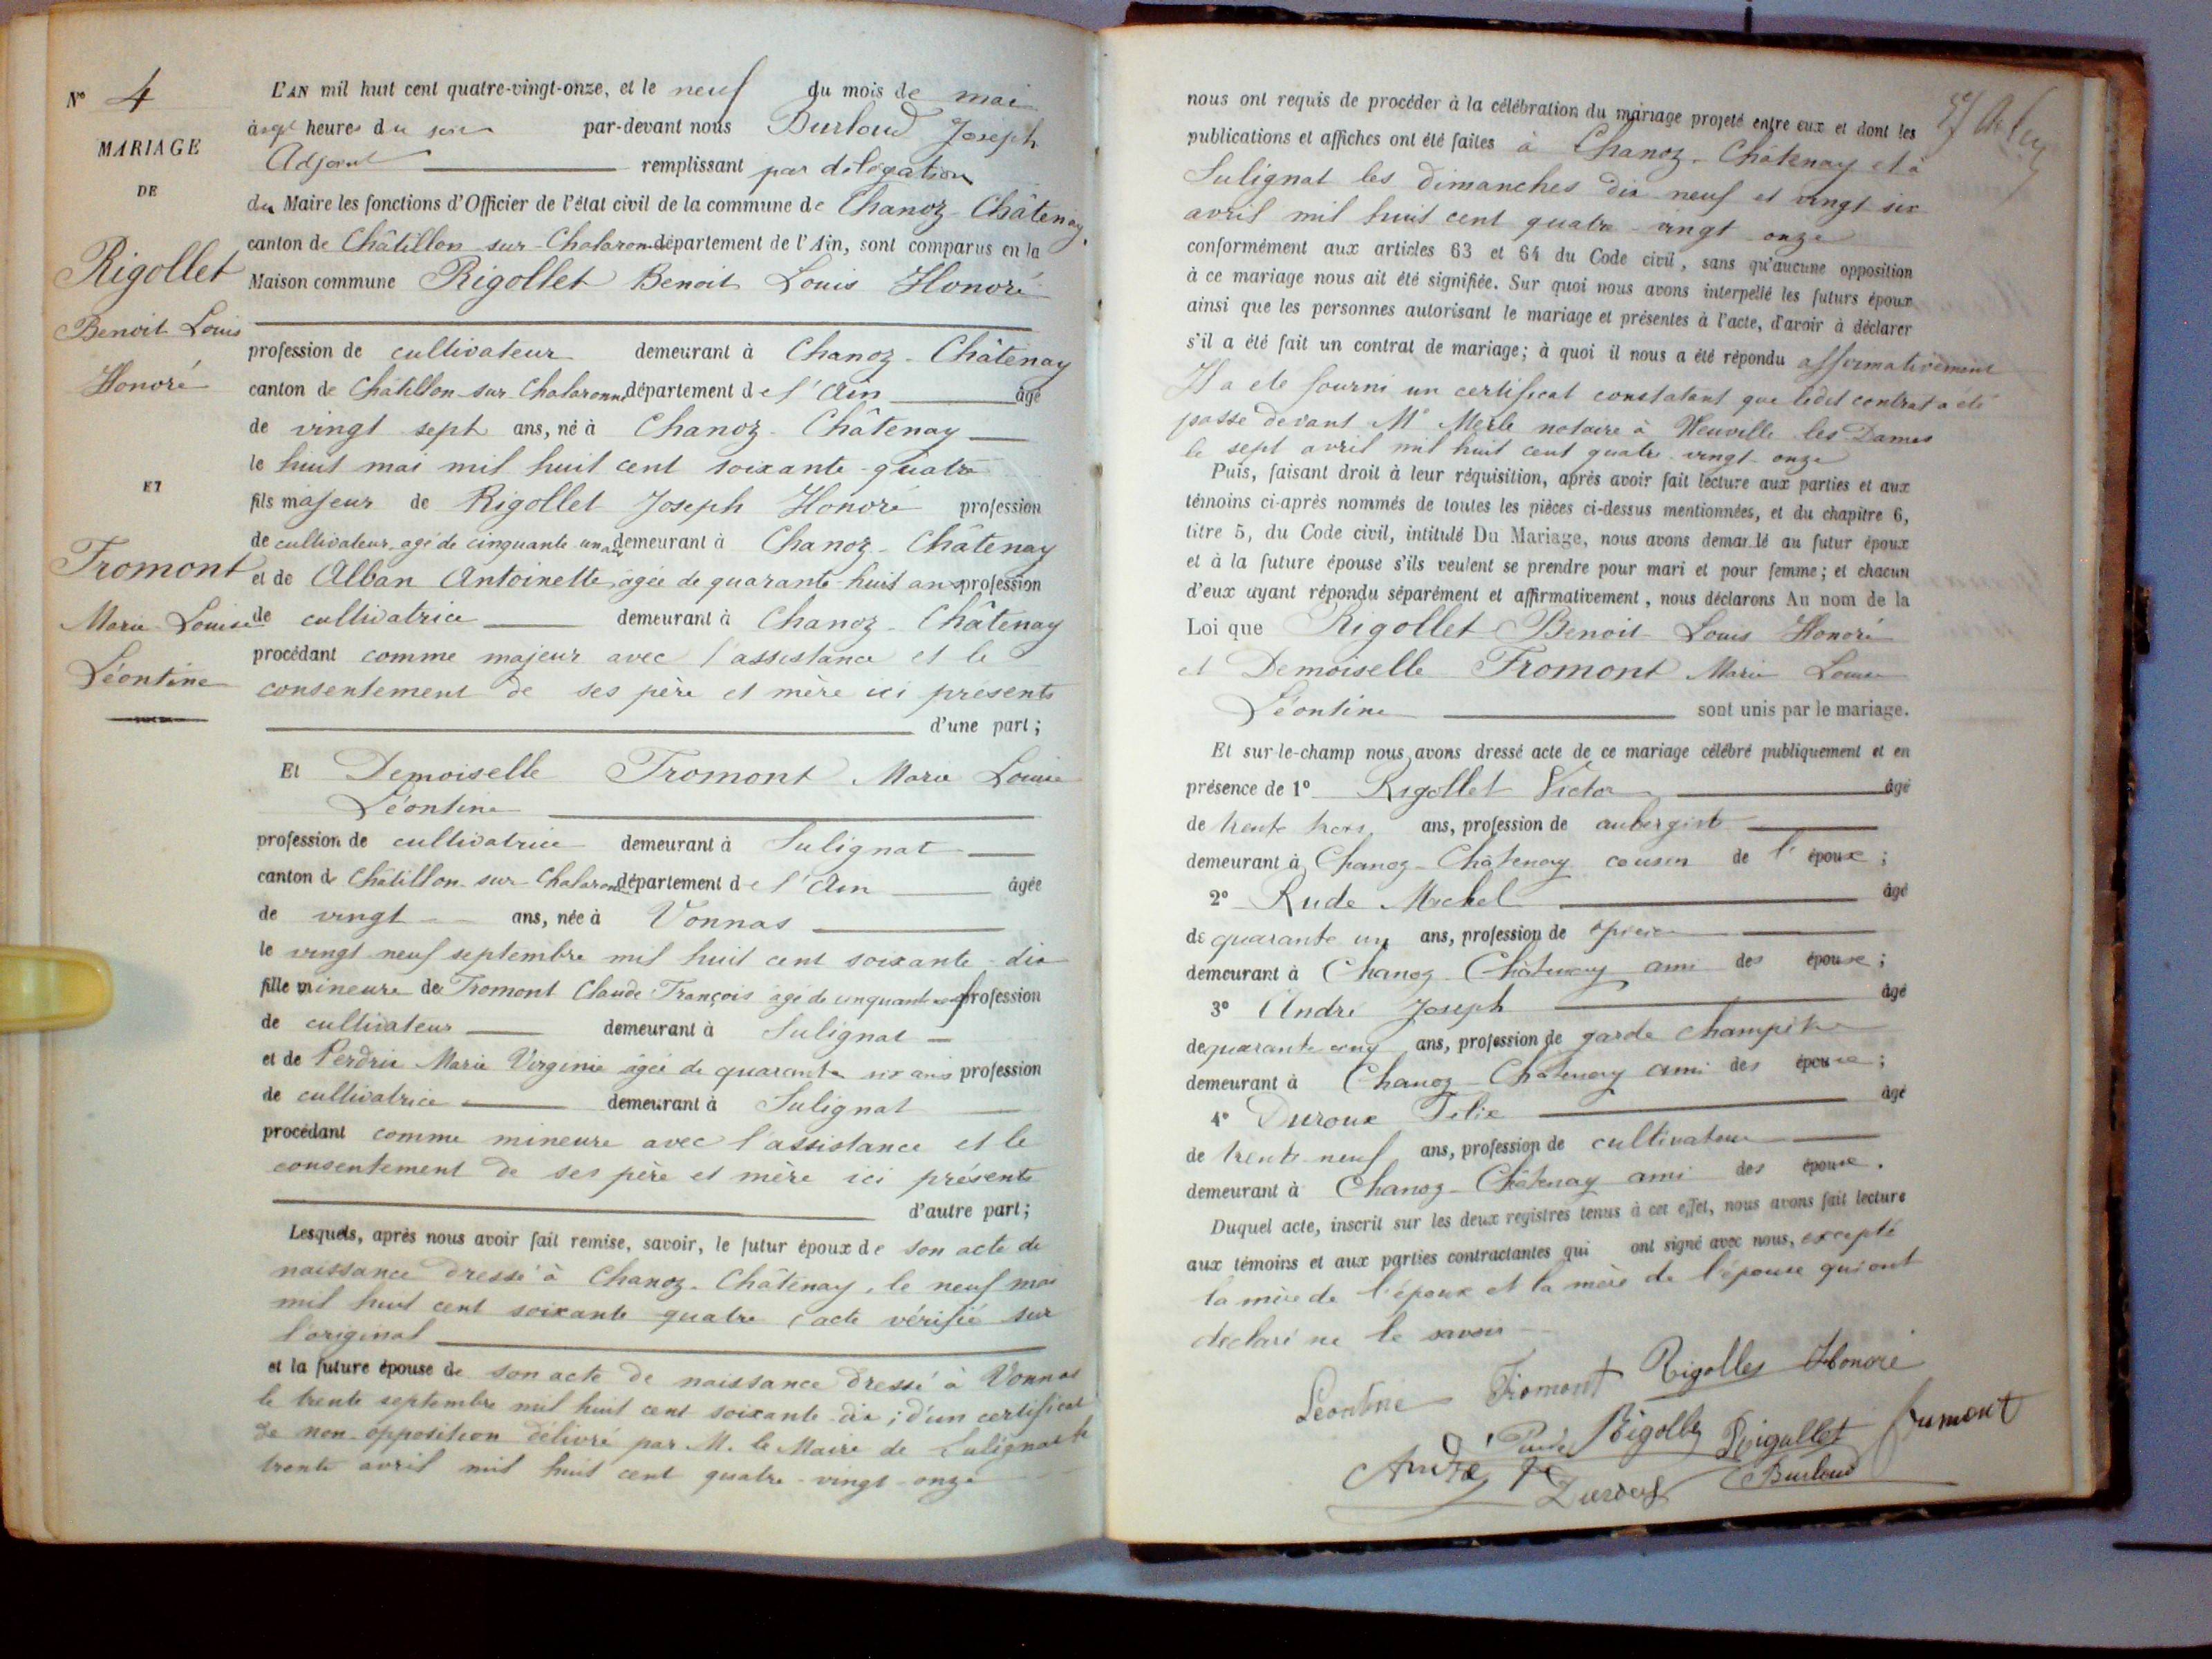 N° 4
MARIAGE
DE
Rigollet
Benoit Louis
Honoré
ET
Fromont
Marie Louise
Léontine
L'AN mil huit cent quatre-vingt-onze, et le neuf du mois de mai
à sept heures du soir par-devant nous Burloud Joseph
Adjoint remplissant par délégation
du Maire les fonctions d'Officier de l'état civil de la commune de Chanoz-Châtenay,
canton de Châtillon-sur-Chalaronne département de l'Ain, sont comparus en la
Maison commune Rigollet Benoit Louis Honoré
profession de cultivateur demeurant à Chanoz-Châtenay
canton de Châtillon-sur-Chalaronne département de l'Ain âgé
de vingt sept ans, né à Chanoz-Châtenay
le huit mai mil huit cent soixante-quatre
fils majeur de Rigollet Joseph Honoré profession
de cultivateur, agé de cinquante un ans demeurant à Chanoz-Châtenay
et de Alban Antoinette âgée de quarante-huit ans profession
de cultivatrice demeurant à Chanoz-Châtenay
procédant comme majeur avec l'assistance et le
consentement de ses père et mère ici présents
d'une part;
Et Demoiselle Fromont Marie Louise
Léontine
profession de cultivatrice demeurant à Sulignat
canton de Châtillon-sur-Chalaronne département de l'Ain âgée
de vingt ans, née à Vonnas
le vingt neuf septembre mil huit cent soixante-dix
fille mineure de Fromont Claude François âgé de cinquante profession
de cultivateur demeurant à Sulignat
et de Perdrix Marie Virginie âgée de quarante six ans profession
de cultivatrice demeurant à Sulignat
procédant comme mineure avec l'assistance et le
consentement de ses père et mère ici présents
d'autre part;
Lesquels, après nous avoir fait remise, savoir, le futur époux de son acte de
naissance dressé à Chanoz-Châtenay, le neuf mai
mil huit cent soixante quatre (acte vérifié sur
l'original
et la future épouse de son acte de naissance dressé à Vonnas
le trente septembre mil huit cent soixante-dix; d'un certificat
de non-opposition délivré par M. le Maire de Sulignat le
trente avril mil huit cent quatre-vingt-onze
nous ont requis de procéder à la célébration du mariage projeté entre eux et dont les
publications et affiches ont été faites à Chanoz-Châtenay et à
Sulignat les dimanches dix neuf et vingt six
avril mil huit cent quatre-vingt-onze
conformément aux articles 63 et 64 du Code civil, sans qu'aucune opposition
à ce mariage nous ait été signifiée. Sur quoi nous avons interpellé les futurs époux
ainsi que les personnes autorisant le mariage et présentes à l'acte, d'avoir à déclarer
s'il a été fait un contrat de mariage; à quoi il nous a été répondu affirmativement
Il a été fourni un certificat constatant que ledit contrat a été
passé devant Me Merle notaire à Neuville les Dames
le sept avril mil huit cent quatre-vingt-onze
Puis, faisant droit à leur réquisition, après avoir fait lecture aux parties et aux
témoins ci-après nommés de toutes les pièces ci-dessus mentionnées, et du chapitre 6,
titre 5, du Code civil, intitulé Du Mariage, nous avons demandé au futur époux
et à la future épouse s'ils veulent se prendre pour mari et pour femme; et chacun
d'eux ayant répondu séparément et affirmativement, nous déclarons Au nom de la
Loi que Rigollet Benoit Louis Honoré
et Demoiselle Fromont Marie Louise
Léontine sont unis par le mariage.
Et sur-le-champ nous avons dressé acte de ce mariage célébré publiquement et en
présence de 1° Rigollet Victor âgé
de trente trois ans, profession de aubergiste
demeurant à Chanoz-Châtenay cousin de l'époux;
2° Rude Michel âgé
de quarante un ans, profession de épicier
demeurant à Chanoz-Châtenay ami des époux;
3° André Joseph âgé
de quarante cinq ans, profession de garde champêtre
demeurant à Chanoz-Châtenay ami des époux;
4° Duroux Félix âgé
de trente-neuf ans, profession de cultivateur
demeurant à Chanoz-Châtenay ami des époux.
Duquel acte, inscrit sur les deux registres tenus à cet effet, nous avons fait lecture
aux témoins et aux parties contractantes qui ont signé avec nous, excepté
la mère de l'époux et la mère de l'épouse qui ont
déclaré ne le savoir
Léontine Fromont Rigollet Honoré
Rude Rigollet Rigollet Fumont
André Je Duroux Burloud